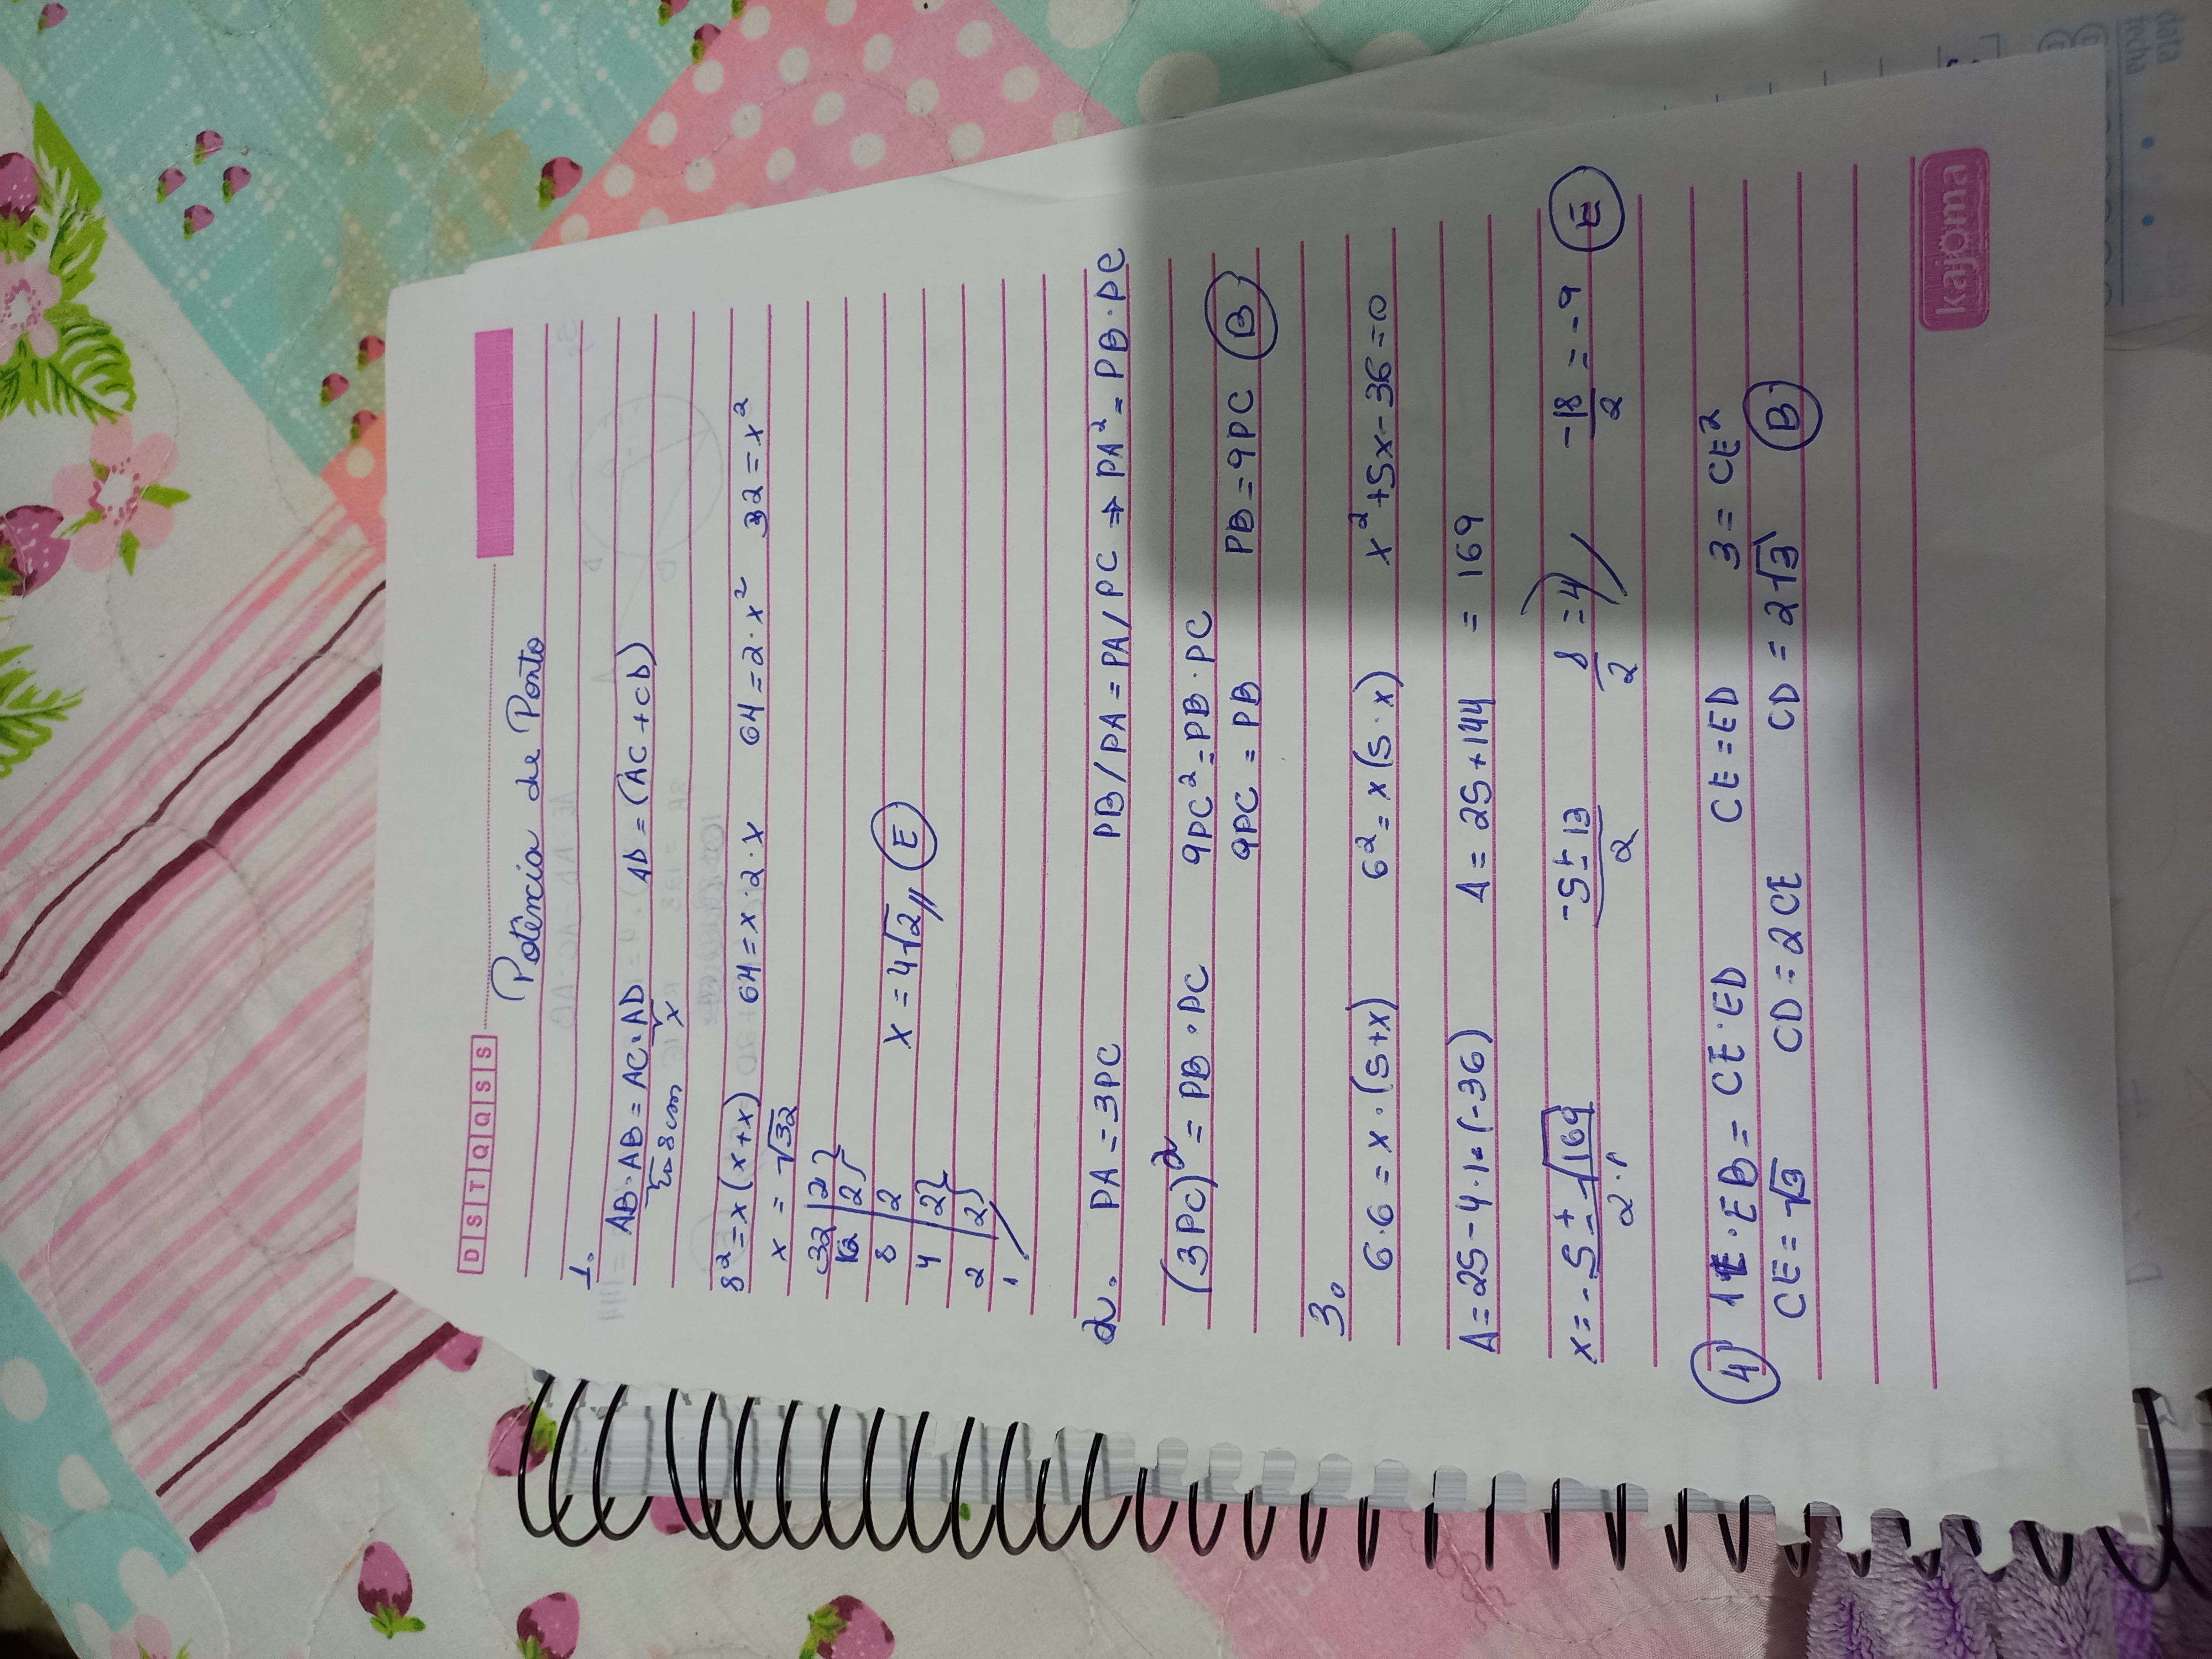 D S T Q Q S S
Potência de Ponto
1.
AB·AB = AC·AD AD = (AC + CD)
8cm x
8² = x(x+x) 64 = x·2·x 64 = 2·x² 32 = x²
x = √32
32 | 2
16 | 2
8 | 2
4 | 2
2 | 2
1
x = 4√2 // E
2. PA = 3PC PB/PA = PA/PC ⇒ PA² = PB·PC
(3PC)² = PB·PC 9PC² = PB·PC
9PC = PB PB = 9PC B
3.
6·6 = x·(5+x) 6² = x(5·x) x²+5x-36=0
Δ = 25-4·1·(-36) Δ = 25+144 = 169
x = -5±√169/2·1 -5±13/2 8/2 = 4 -18/2 = -9 E
4 1E·EB = CE·ED CE = ED 3 = CE²
CE = √3 CD = 2CE CD = 2√3 B
kajoma